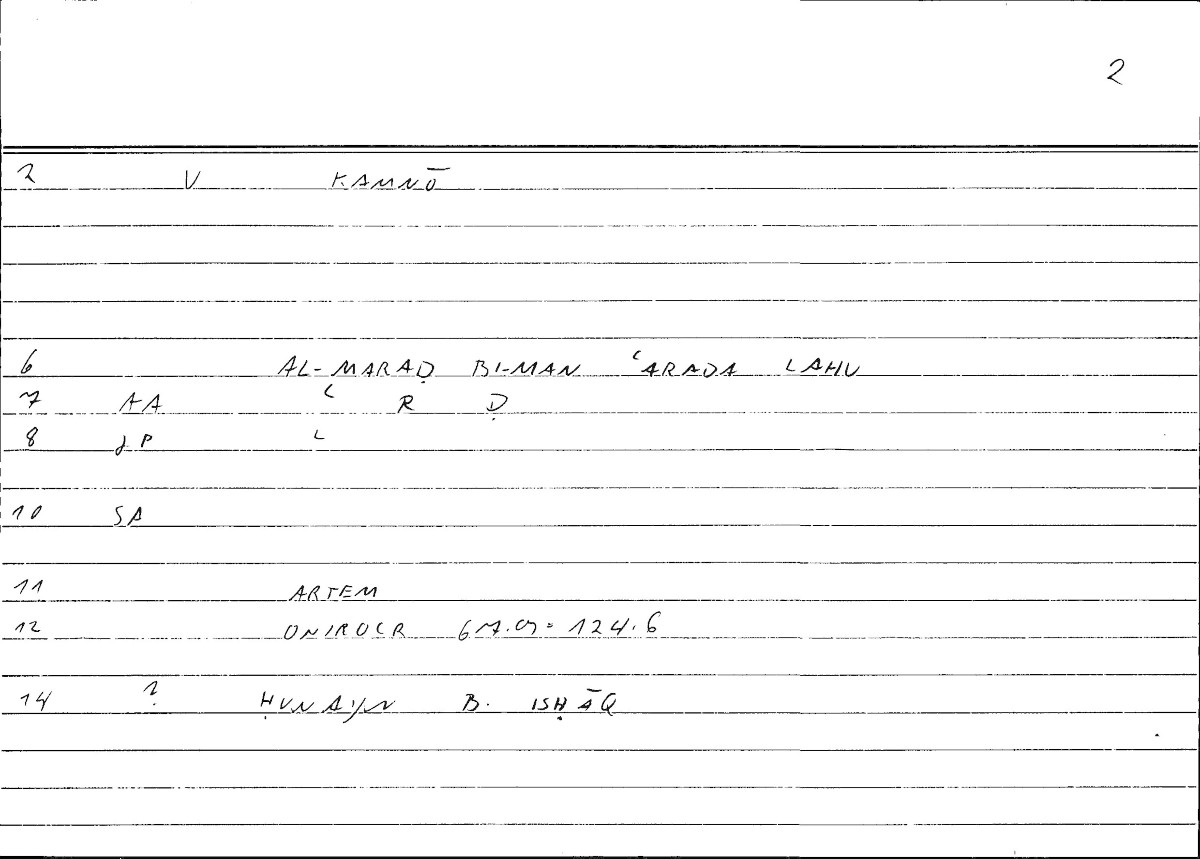 2
2 V KAMNŌ
6 AL-MARAḌ BI-MAN ʿARADA LAHU
7 AA ʿ R Ḍ
8 JP L
10 SA
11 ARTEM
12 ONIROCR 67.9 = 124.6
14 ? ḤUNAYN B. ISḤĀQ